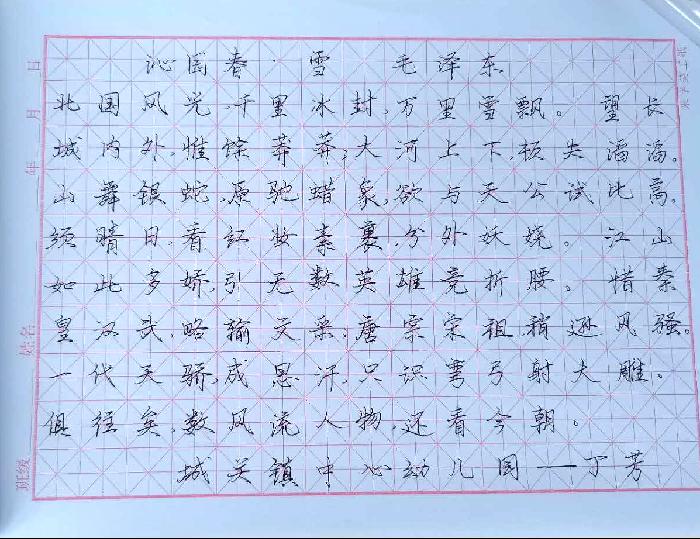 沁园春·雪 毛泽东
北国风光,千里冰封,万里雪飘。望长
城内外,惟馀莽莽,大河上下,顿失滔滔。
山舞银蛇,原驰蜡象,欲与天公试比高。
须晴日,看红妆素裹,分外妖娆。江山
如此多娇,引无数英雄竞折腰。惜秦
皇汉武,略输文采,唐宗宋祖稍逊风骚。
一代天骄,成思汗,只识弯弓射大雕。
俱往矣,数风流人物,还看今朝。
城关镇中心幼儿园——丁芳
班级 姓名 年 月 日